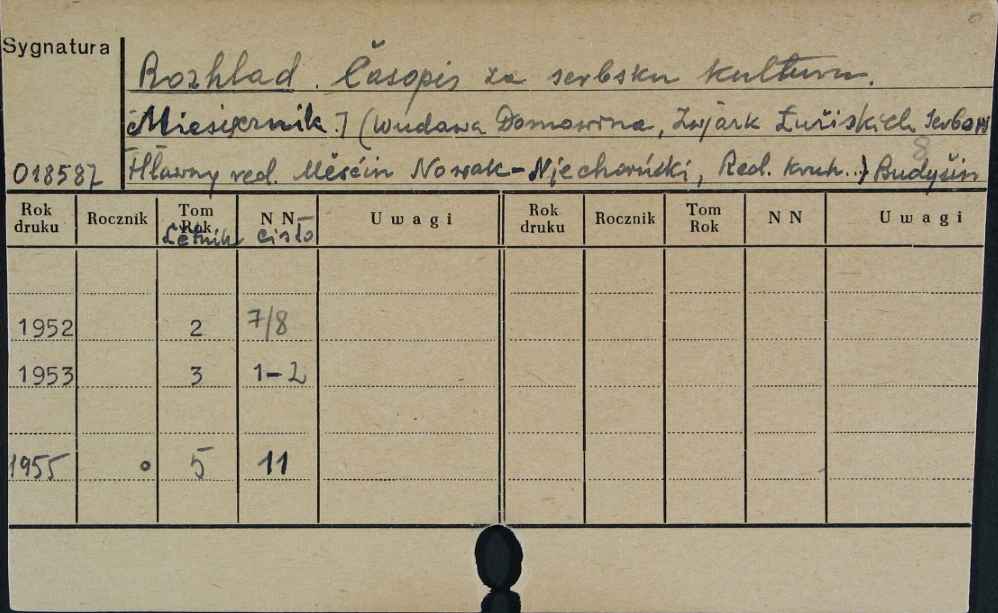 Sygnatura
Rozhlad. Časopis za serbsku kulturu.
[Miesięcznik.] (Wudawa Domowina, Zwjazk Łužiskich Serbow
018587 Hłowny red. Měrćin Nowak-Njechorński, Red. kruh...) Budyšin
8
Rok druku Rocznik Tom Rok NN Uwagi Rok druku Rocznik Tom Rok NN Uwagi
Lětnik čisło
1952 2 7/8
1953 3 1-2
1955 5 11